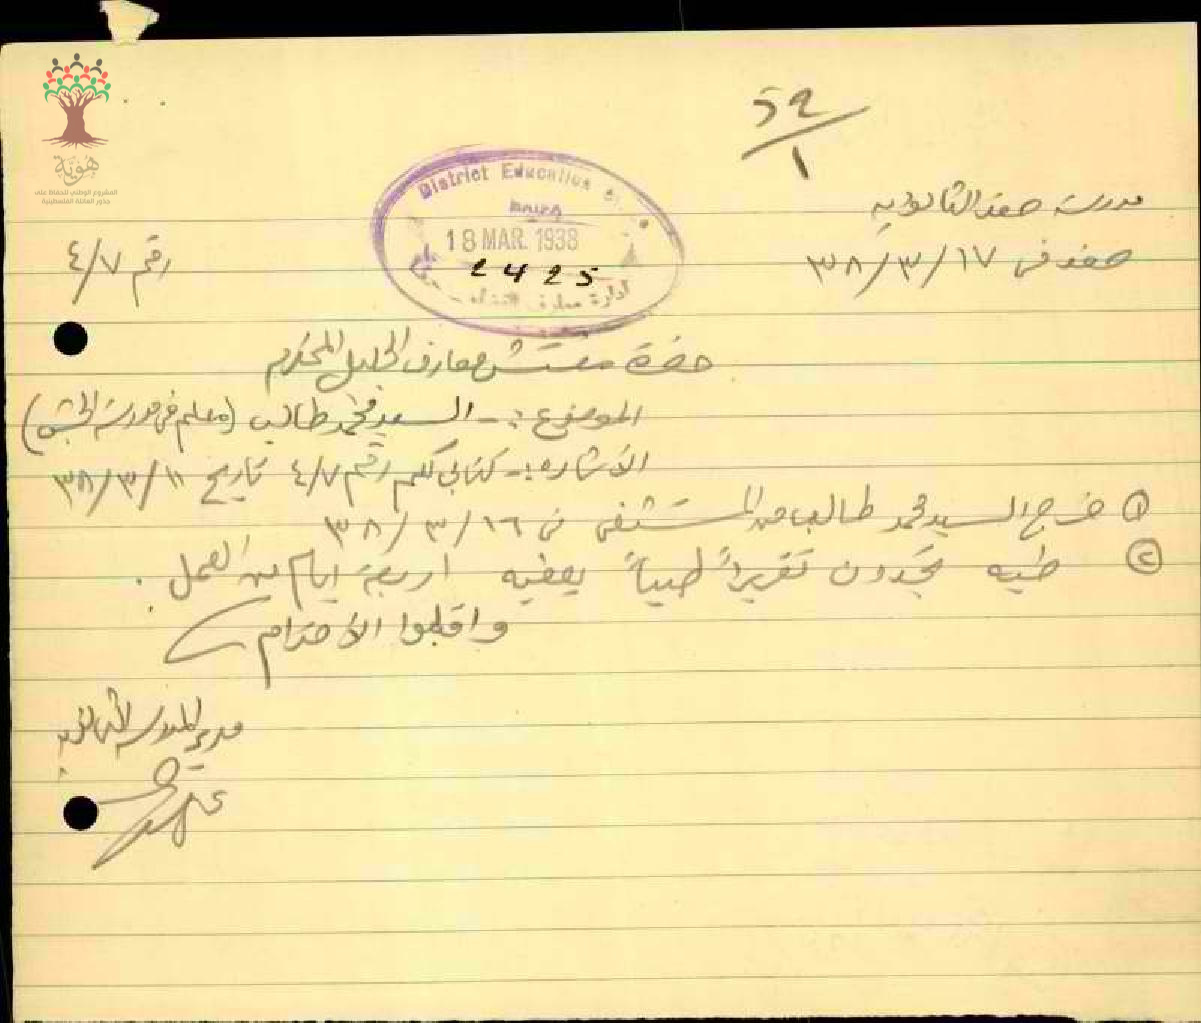 هُويّة
المشروع الوطني للحفاظ على
جذور العائلة الفلسطينية
52/1
District Education
18 MAR. 1938
2425
إدارة معارف
مدرسة صفد الثانوية
صفد في ١٧/٣/٣٨
رقم ٤/٧
حضرة مفتش معارف الجليل المحترم
الموضوع :- السيد محمد طالب (معلم في مدرسة الجش)
الأشارة :- كتابي لكم رقم ٤/٧ تاريخ ١١/٣/٣٨
① خرج السيد محمد طالب من المستشفى في ١٦/٣/٣٨
② طيه تجدون تقريراً طبياً يعفيه اربعة ايام من العمل .
واقبلوا الأحترام
مدير المدرسة الثانوية